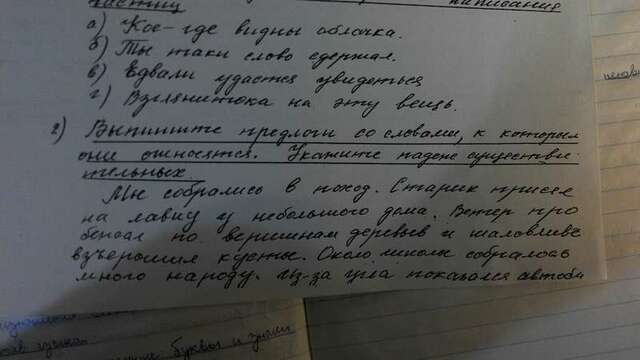 частиц написания
а) Кое-где видны облачка.
б) Ты таки слово сдержал.
в) Едвали удастся увидеться
г) Взглянитока на эту вещь.
2) Выпишите предлоги со словами, к которым
они относятся. Укажите падеж существи-
тельных.
Мы собрались в поход. Старик присел
на лавку у небольшого дома. Ветер про
бежал по вершинам деревьев и шаловливо
взъерошил кусты. Около школы собралось
много народу. Из-за угла показался автобу
буквы и знаки